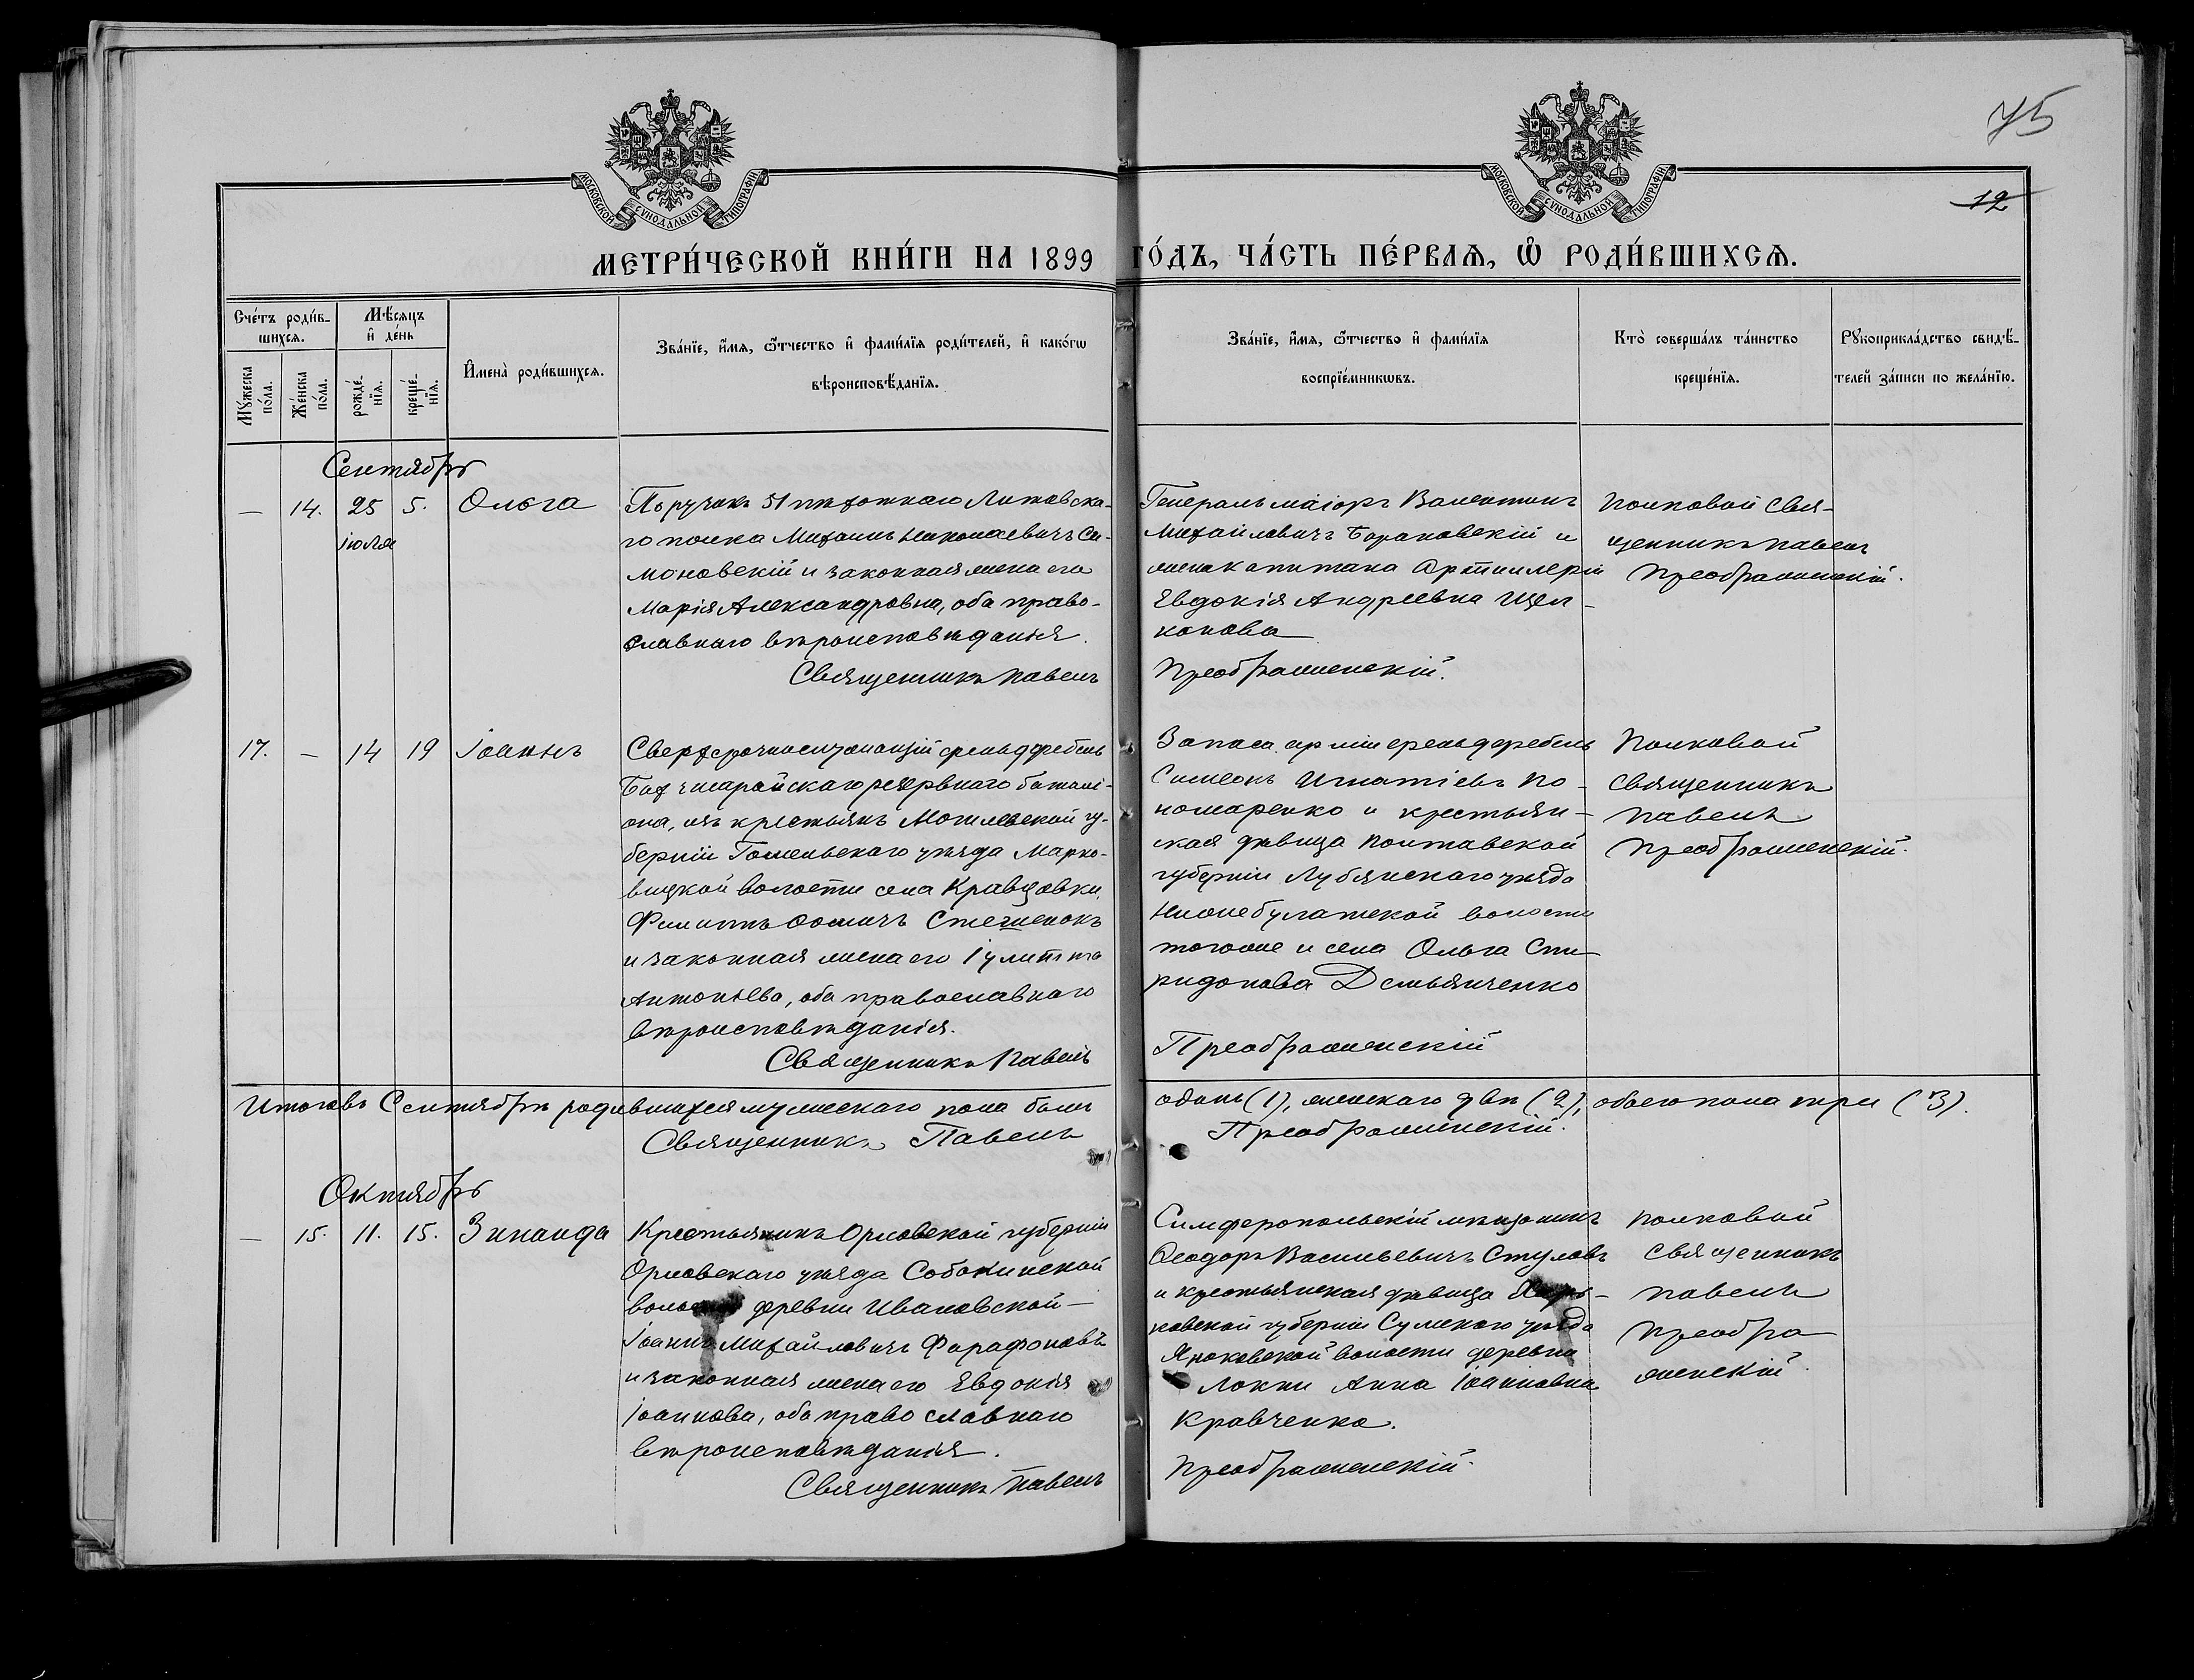 75
12
МОСКОВСКОЙ СѴНОДАЛЬНОЙ ТИПОГРАФІИ
МОСКОВСКОЙ СѴНОДАЛЬНОЙ ТИПОГРАФІИ
МЕТРИ́ЧЕСКОЙ КНИ́ГИ НА 1899 ГО́ДЪ, ЧА́СТЬ ПЕ́РВАѦ, Ѡ҆ РОДИ́ВШИХСѦ.
Сче́тъ роди́в-
шихсѧ.
Мѣ́сѧцъ
и҆ де́нь
Мꙋ́жеска
по́ла.
Же́нска
по́ла.
рожде́-
нїѧ.
креще́-
нїѧ.
И҆мена̀ роди́вшихсѧ.
Зва́нїе, и҆́мѧ, ѻ҆́тчество и҆ фами́лїѧ роди́телей, и҆ како́гѡ
вѣроисповѣ́данїѧ.
Зва́нїе, и҆́мѧ, ѻ҆́тчество и҆ фами́лїѧ
воспрїе́мникѡвъ.
Кто̀ соверша́лъ та́инство
креще́нїѧ.
Рꙋкоприкла́дство свидѣ́-
телей за́писи по жела́нїю.
Сентябрь
— 14. 25 5. Ольга
іюля
Поручикъ 51 пѣхотнаго Литовска-
го полка Михаилъ Николаевичъ Си-
моновскій и законная жена его
Марія Александровна, оба право-
славнаго вѣроисповѣданія.
Священникъ Павелъ
Генералъ маіоръ Валентинъ
Михайловичъ Барановскій и
жена капитана Артиллеріи
Евдокія Андреевна Щел-
конова
Преображенскій.
Полковой Свя-
щенникъ Павелъ
Преображенскій.
17. — 14 19 Іоаннъ
Сверхсрочнослужащій фельдфебель
Бахчисарайскаго резервнаго баталі-
она, изъ крестьянъ Могилевской гу-
берніи Гомельскаго уѣзда Марко-
вицкой волости села Кравцовки,
Филиппъ Ѳомичъ Стегленокъ
и законная жена его Іулитта
Антоньева, оба православнаго
вѣроисповѣданія.
Священникъ Павелъ
Запаса арміи фельдфебель
Симеонъ Игнатіевъ По-
номаренко и крестьян-
ская дѣвица Полтавской
губерніи Лубянскаго уѣзда
волости
тогоже и села Ольга Спи-
ридонова Демьянченко
Преображенскій
Полковой
Священникъ
Павелъ
Преображенскій.
Итого въ Сентябрѣ родившихся мужескаго пола было одинъ (1), женскаго двѣ (2), обоего пола три (3).
Священникъ Павелъ Преображенскій.
Октябрь
— 15. 11. 15. Зинаида
Крестьянинъ Орловской губерніи
Орловскаго уѣзда Собакинской
волости деревни Ивановской —
Іоаннъ Михайловичъ Фарафоновъ
и законная жена его Евдокія
Іоаннова, оба православнаго
вѣроисповѣданія.
Священникъ Павелъ
Симферопольскій мѣщанинъ
Ѳеодоръ Васильевичъ Стуловъ
и крестьянская дѣвица Харь-
ковской губерніи Сумскаго уѣзда
Яноковской волости деревни
Локни Анна Іоанновна
Кравченко.
Преображенскій.
Полковой
Священникъ
Павелъ
Преобра
женскій.